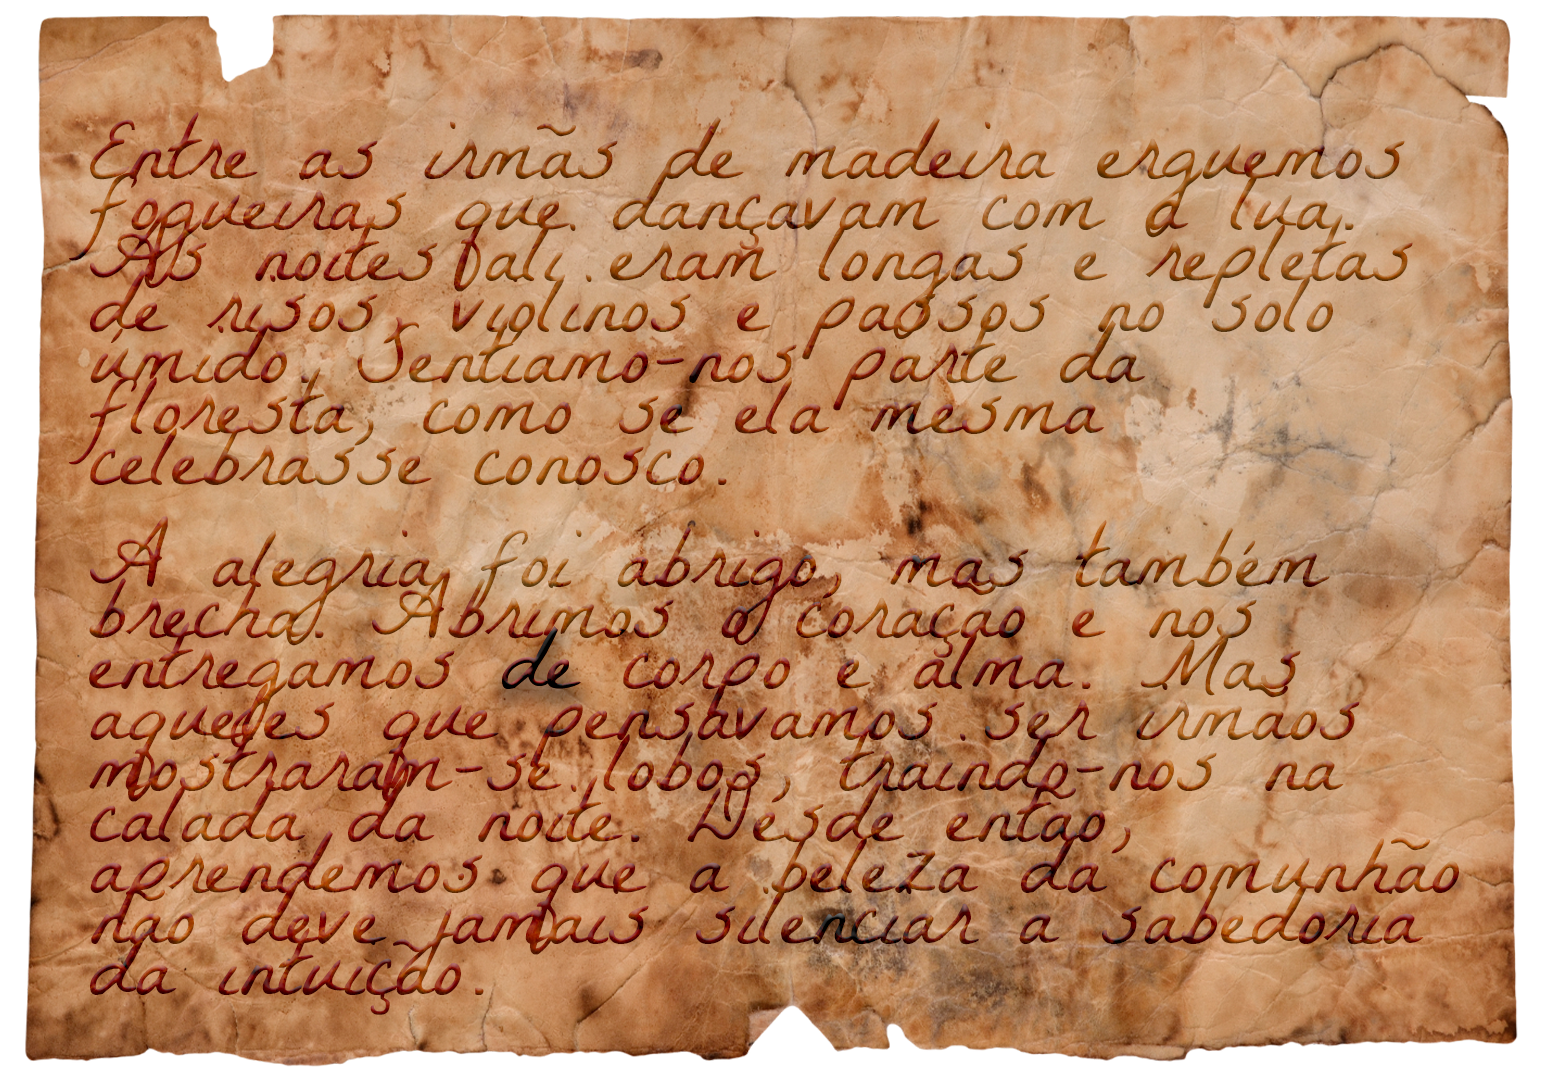 Entre as irmãs de madeira erguemos
fogueiras que dançavam com a lua.
As noites ali eram longas e repletas
de risos, violinos e passos no solo
úmido. Sentíamo-nos parte da
floresta, como se ela mesma
celebrasse conosco.
A alegria foi abrigo, mas também
brecha. Abrimos o coração e nos
entregamos de corpo e alma. Mas
aqueles que pensávamos ser irmãos
mostraram-se lobos, traindo-nos na
calada da noite. Desde então,
aprendemos que a beleza da comunhão
não deve jamais silenciar a sabedoria
da intuição.